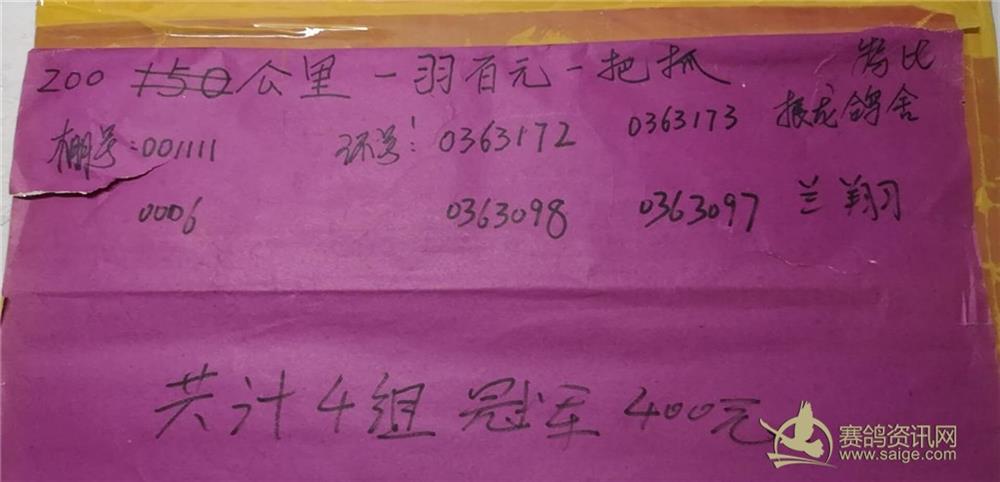 200 150公里 一羽百元一把抓
棚号:001111 环号: 0363172 0363173 振龙鸽舍
0006 0363098 0363097 兰翔
共计4组 冠军400元
赛鸽资讯网
www.saige.com